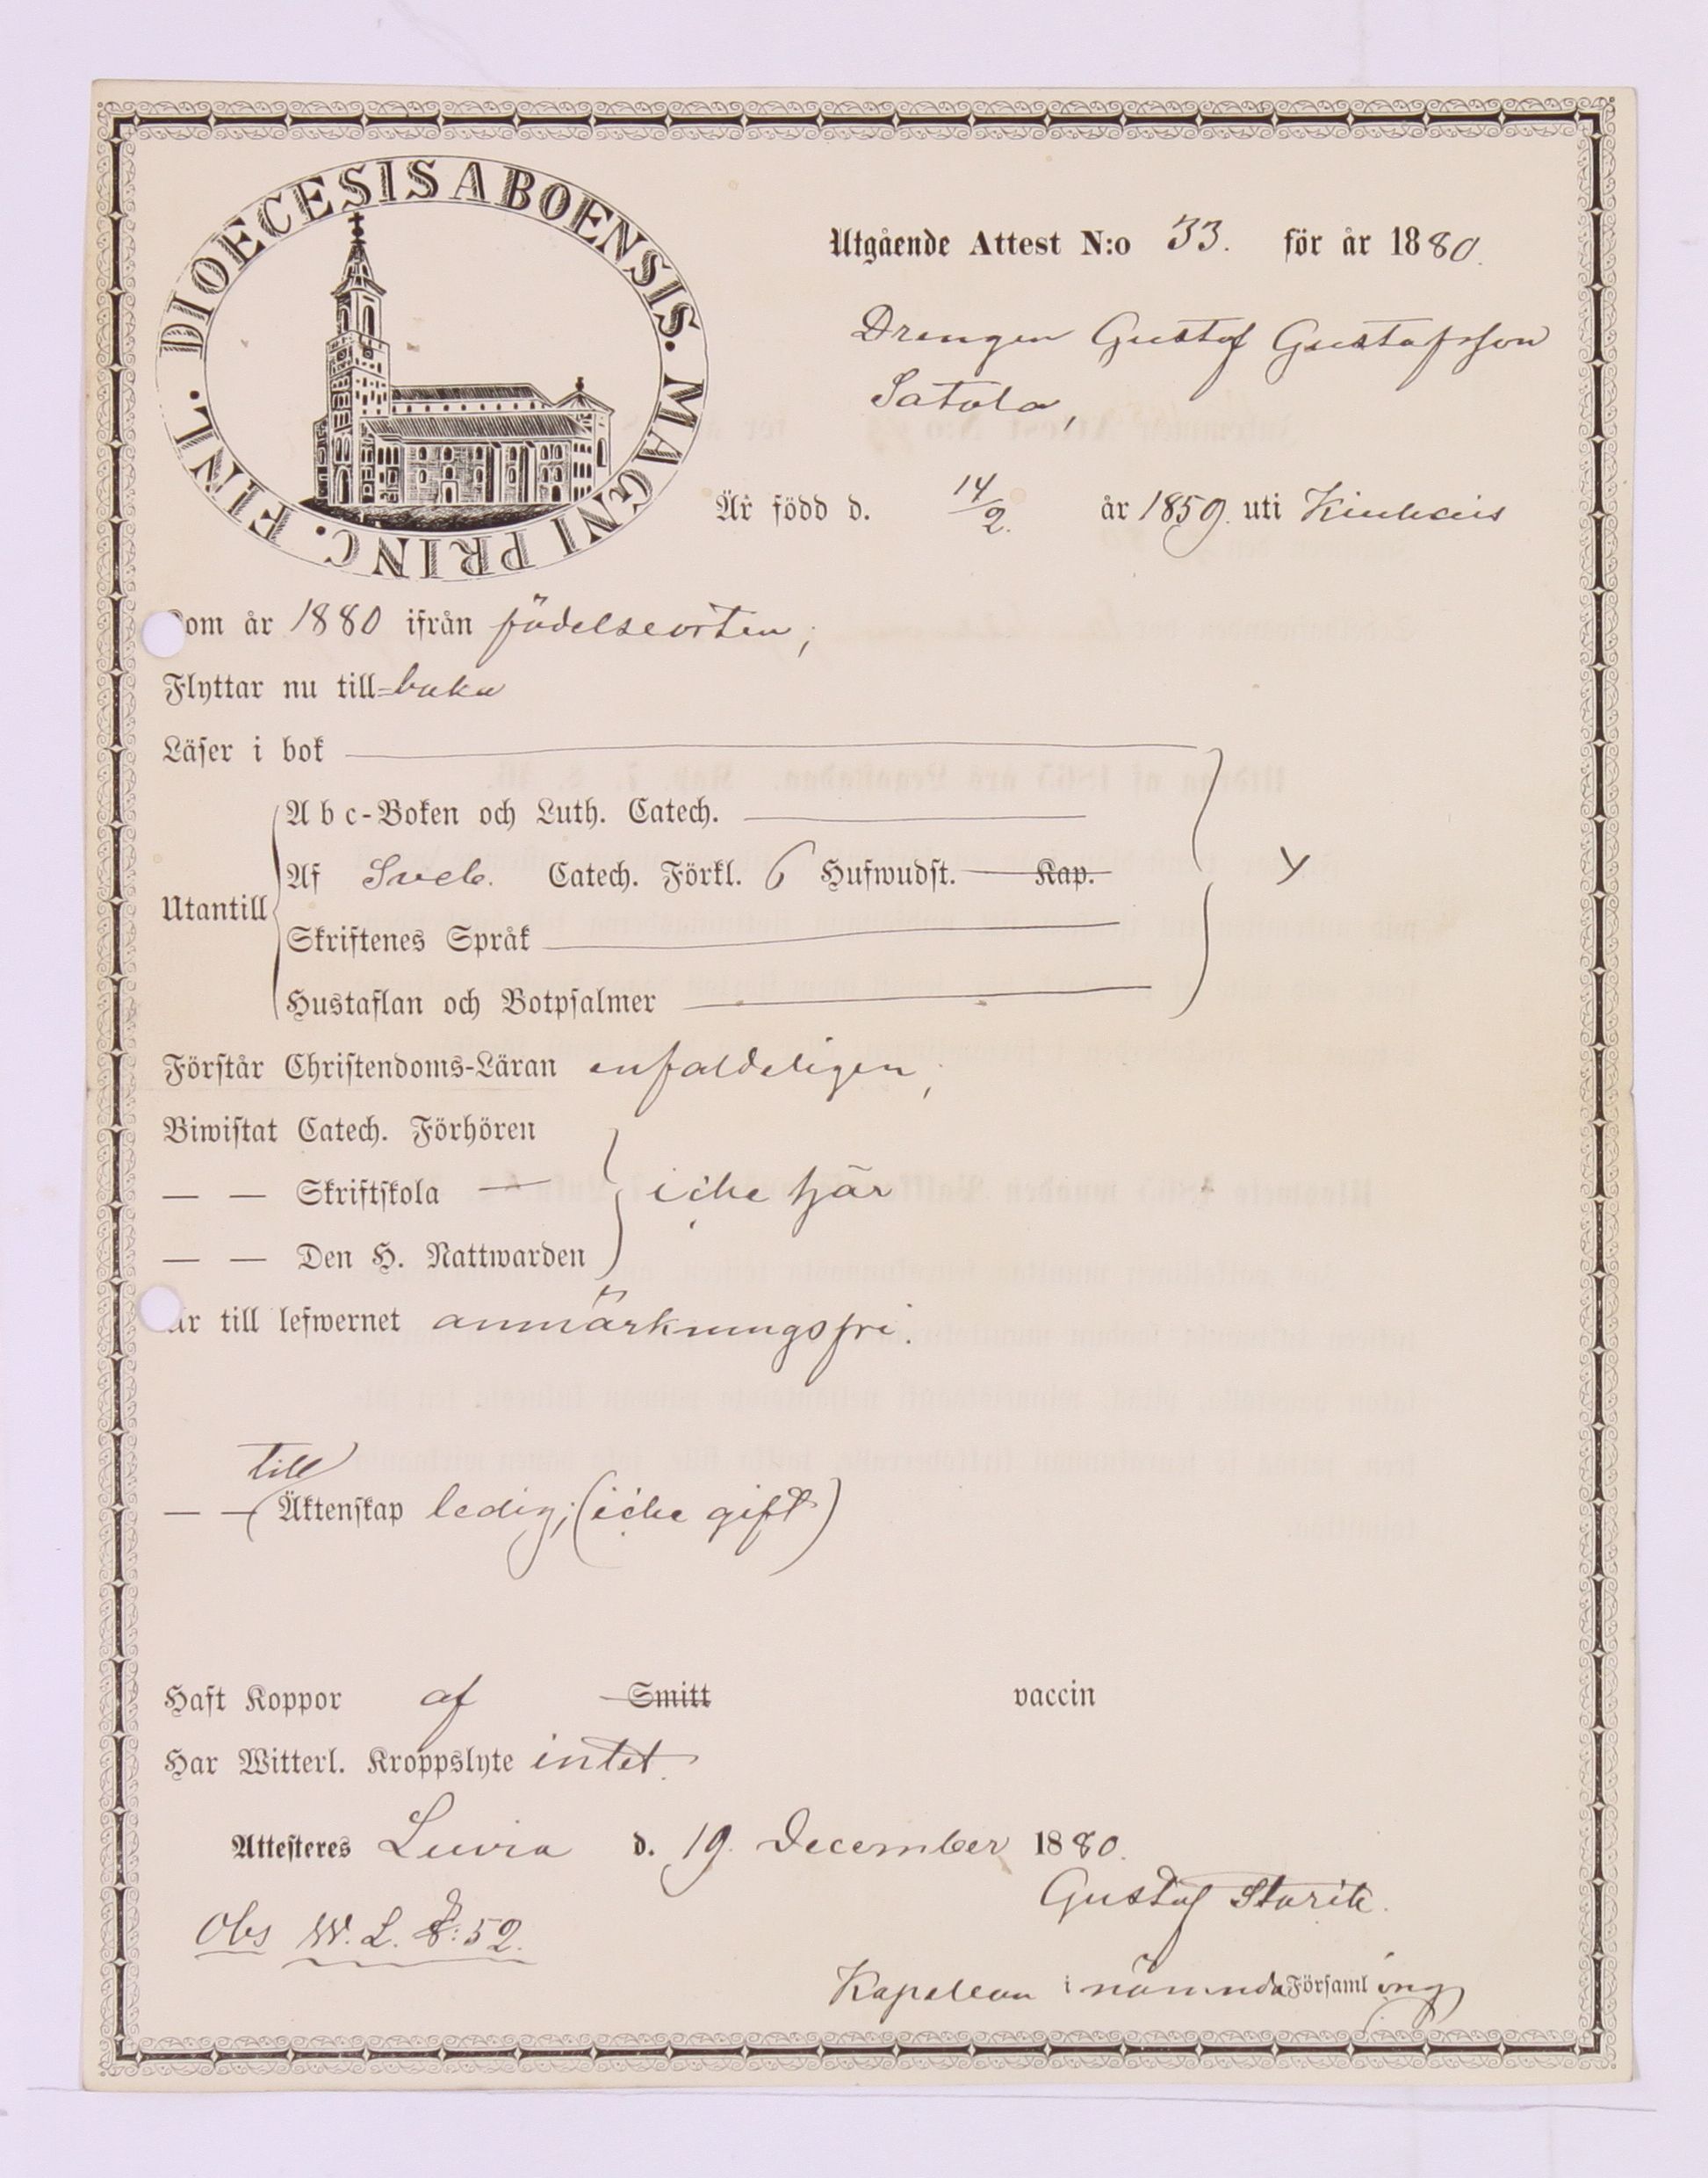 DIOECESIS ABOENSIS. MAGNI PRINC. FINL.
Utgående Attest N:o 33. för år 1880.
Drengen Gustaf Gustafsson
Satola,
Är född d. 14/2. år 1859. uti Kiukais
Kom år 1880 ifrån födelseorten;
Flyttar nu till baka
Läser i bok
Abc-Boken och Luth. Catech.
Utantill
Af Sveb. Catech. Förkl. 6 Hufwudst. Kap.
Skriftenes Språk
Hustaflan och Botpsalmer
Förstår Christendoms-Läran enfaldeligen,
Biwistat Catech. Förhören
— — Skriftskola — icke här
— — Den H. Nattwarden
Är till lefwernet anmärkningsfri.
till
— — Äktenskap ledig; (icke gift)
Haft Koppor af Smitt vaccin
Har Witterl. Kroppslyte intet.
Attesteres Luvia d. 19. December 1880.
Gustaf
Obs W. L. 8:52.
Kapellan i nämnda Församling